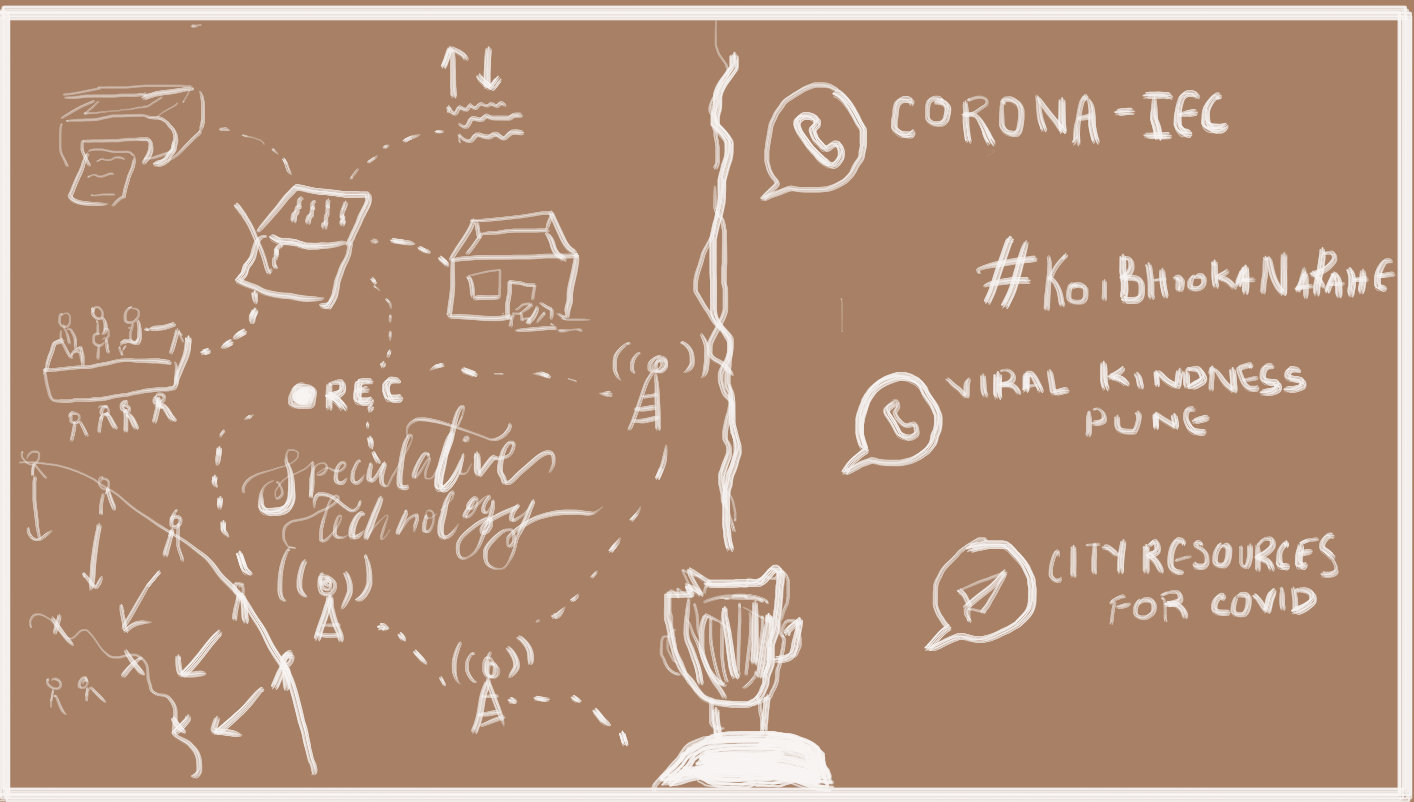 REC
Speculative
Technology
CORONA-IEC
#KOIBHOOKANARAHE
VIRAL KINDNESS
PUNE
CITY RESOURCES
FOR COVID